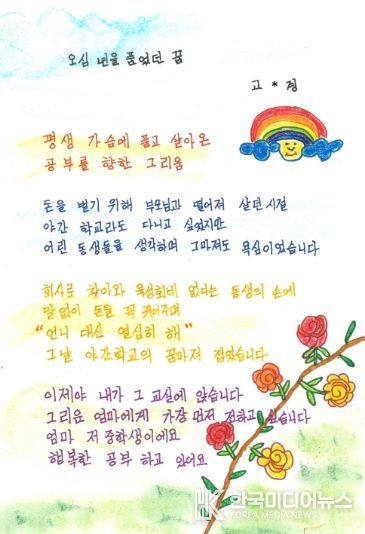 오십 년을 품었던 꿈
고 * 정
평생 가슴에 품고 살아온
공부를 향한 그리움
돈을 벌기 위해 부모님과 떨어져 살던 시절
야간 학교라도 다니고 싶었지만
어린 동생들을 생각하며 그마저도 욕심이었습니다
회사로 찾아와 육성회비 없다는 동생의 손에
말없이 돈을 꼭 쥐어주며
"언니 대신 열심히 해"
그날 야간학교의 꿈마저 접었습니다
이제야 내가 그 교실에 앉습니다
그리운 엄마에게 가장 먼저 전하고 싶습니다
엄마 저 중학생이에요
행복한 공부 하고 있어요
한국미디어뉴스
KOREA MEDIA NEWS